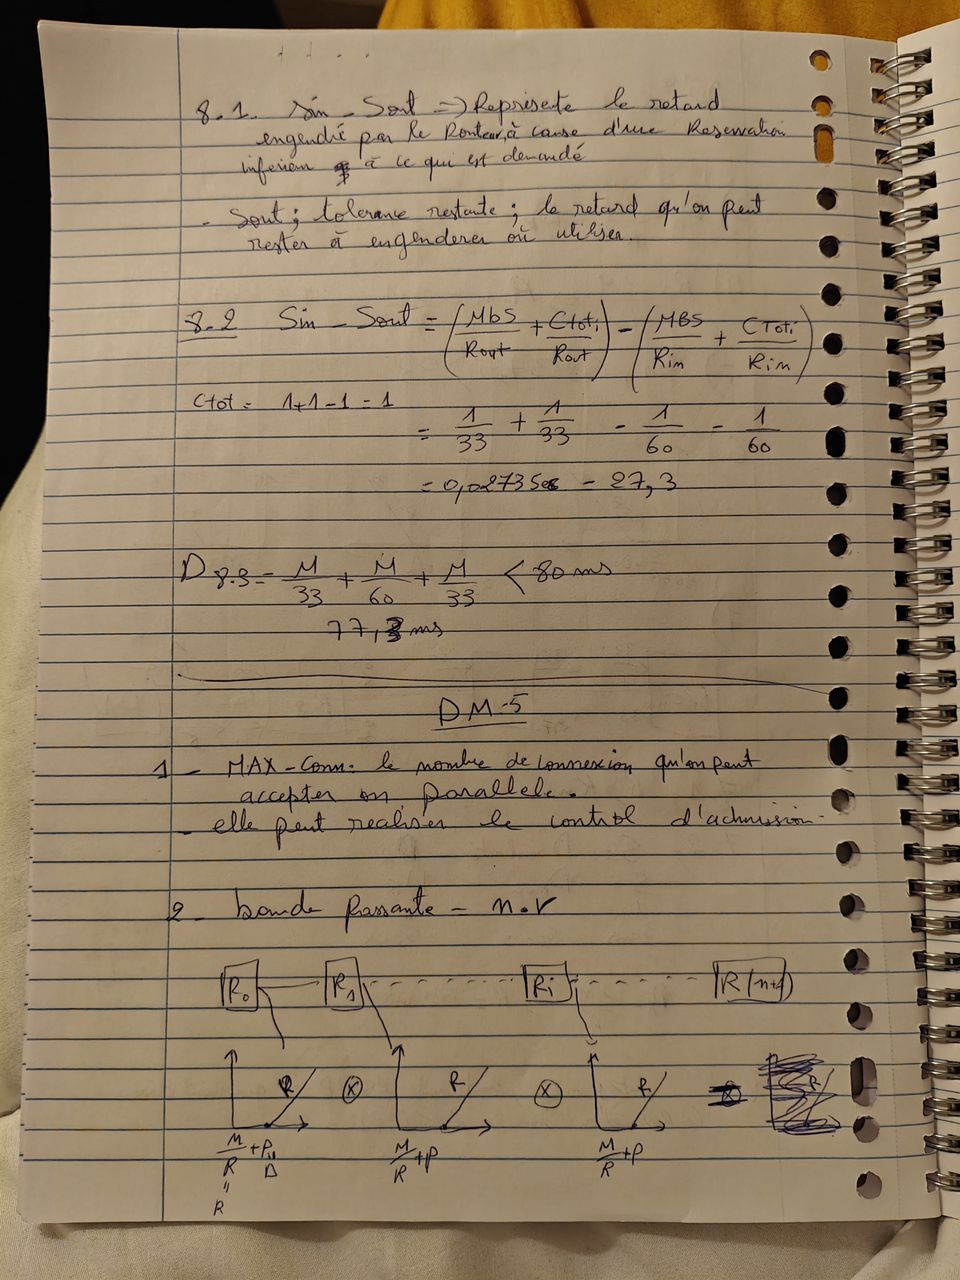 8.1. Sin - Sout => Représente le retard
engendré par le Routeur, à cause d'une Reservation
inferieur à ce qui est demandé
- Sout ; tolerance restante ; le retard qu'on peut
rester à engenderer où utiliser.
8.2 Sin - Sout = (MbS/Rout + Ctoti/Rout) - (MBS/Rin + CToti/Rin)
Ctot = 1+1-1 = 1
= 1/33 + 1/33 - 1/60 - 1/60
= 0,0273 = 27,3
D 8.3 = M/33 + M/60 + M/33 < 80 ms
77,3 ms
DM-5
1 - MAX-Conn: le nombre de connexion qu'on peut
accepter en parallele.
- elle peut realiser le control d'admission.
2 - bande Passante = n.r
R0 R1 Ri R(n+1)
R ⊗ R ⊗ R ⊗ R
M/R + P M/R + P M/R + P
" " Δ
R